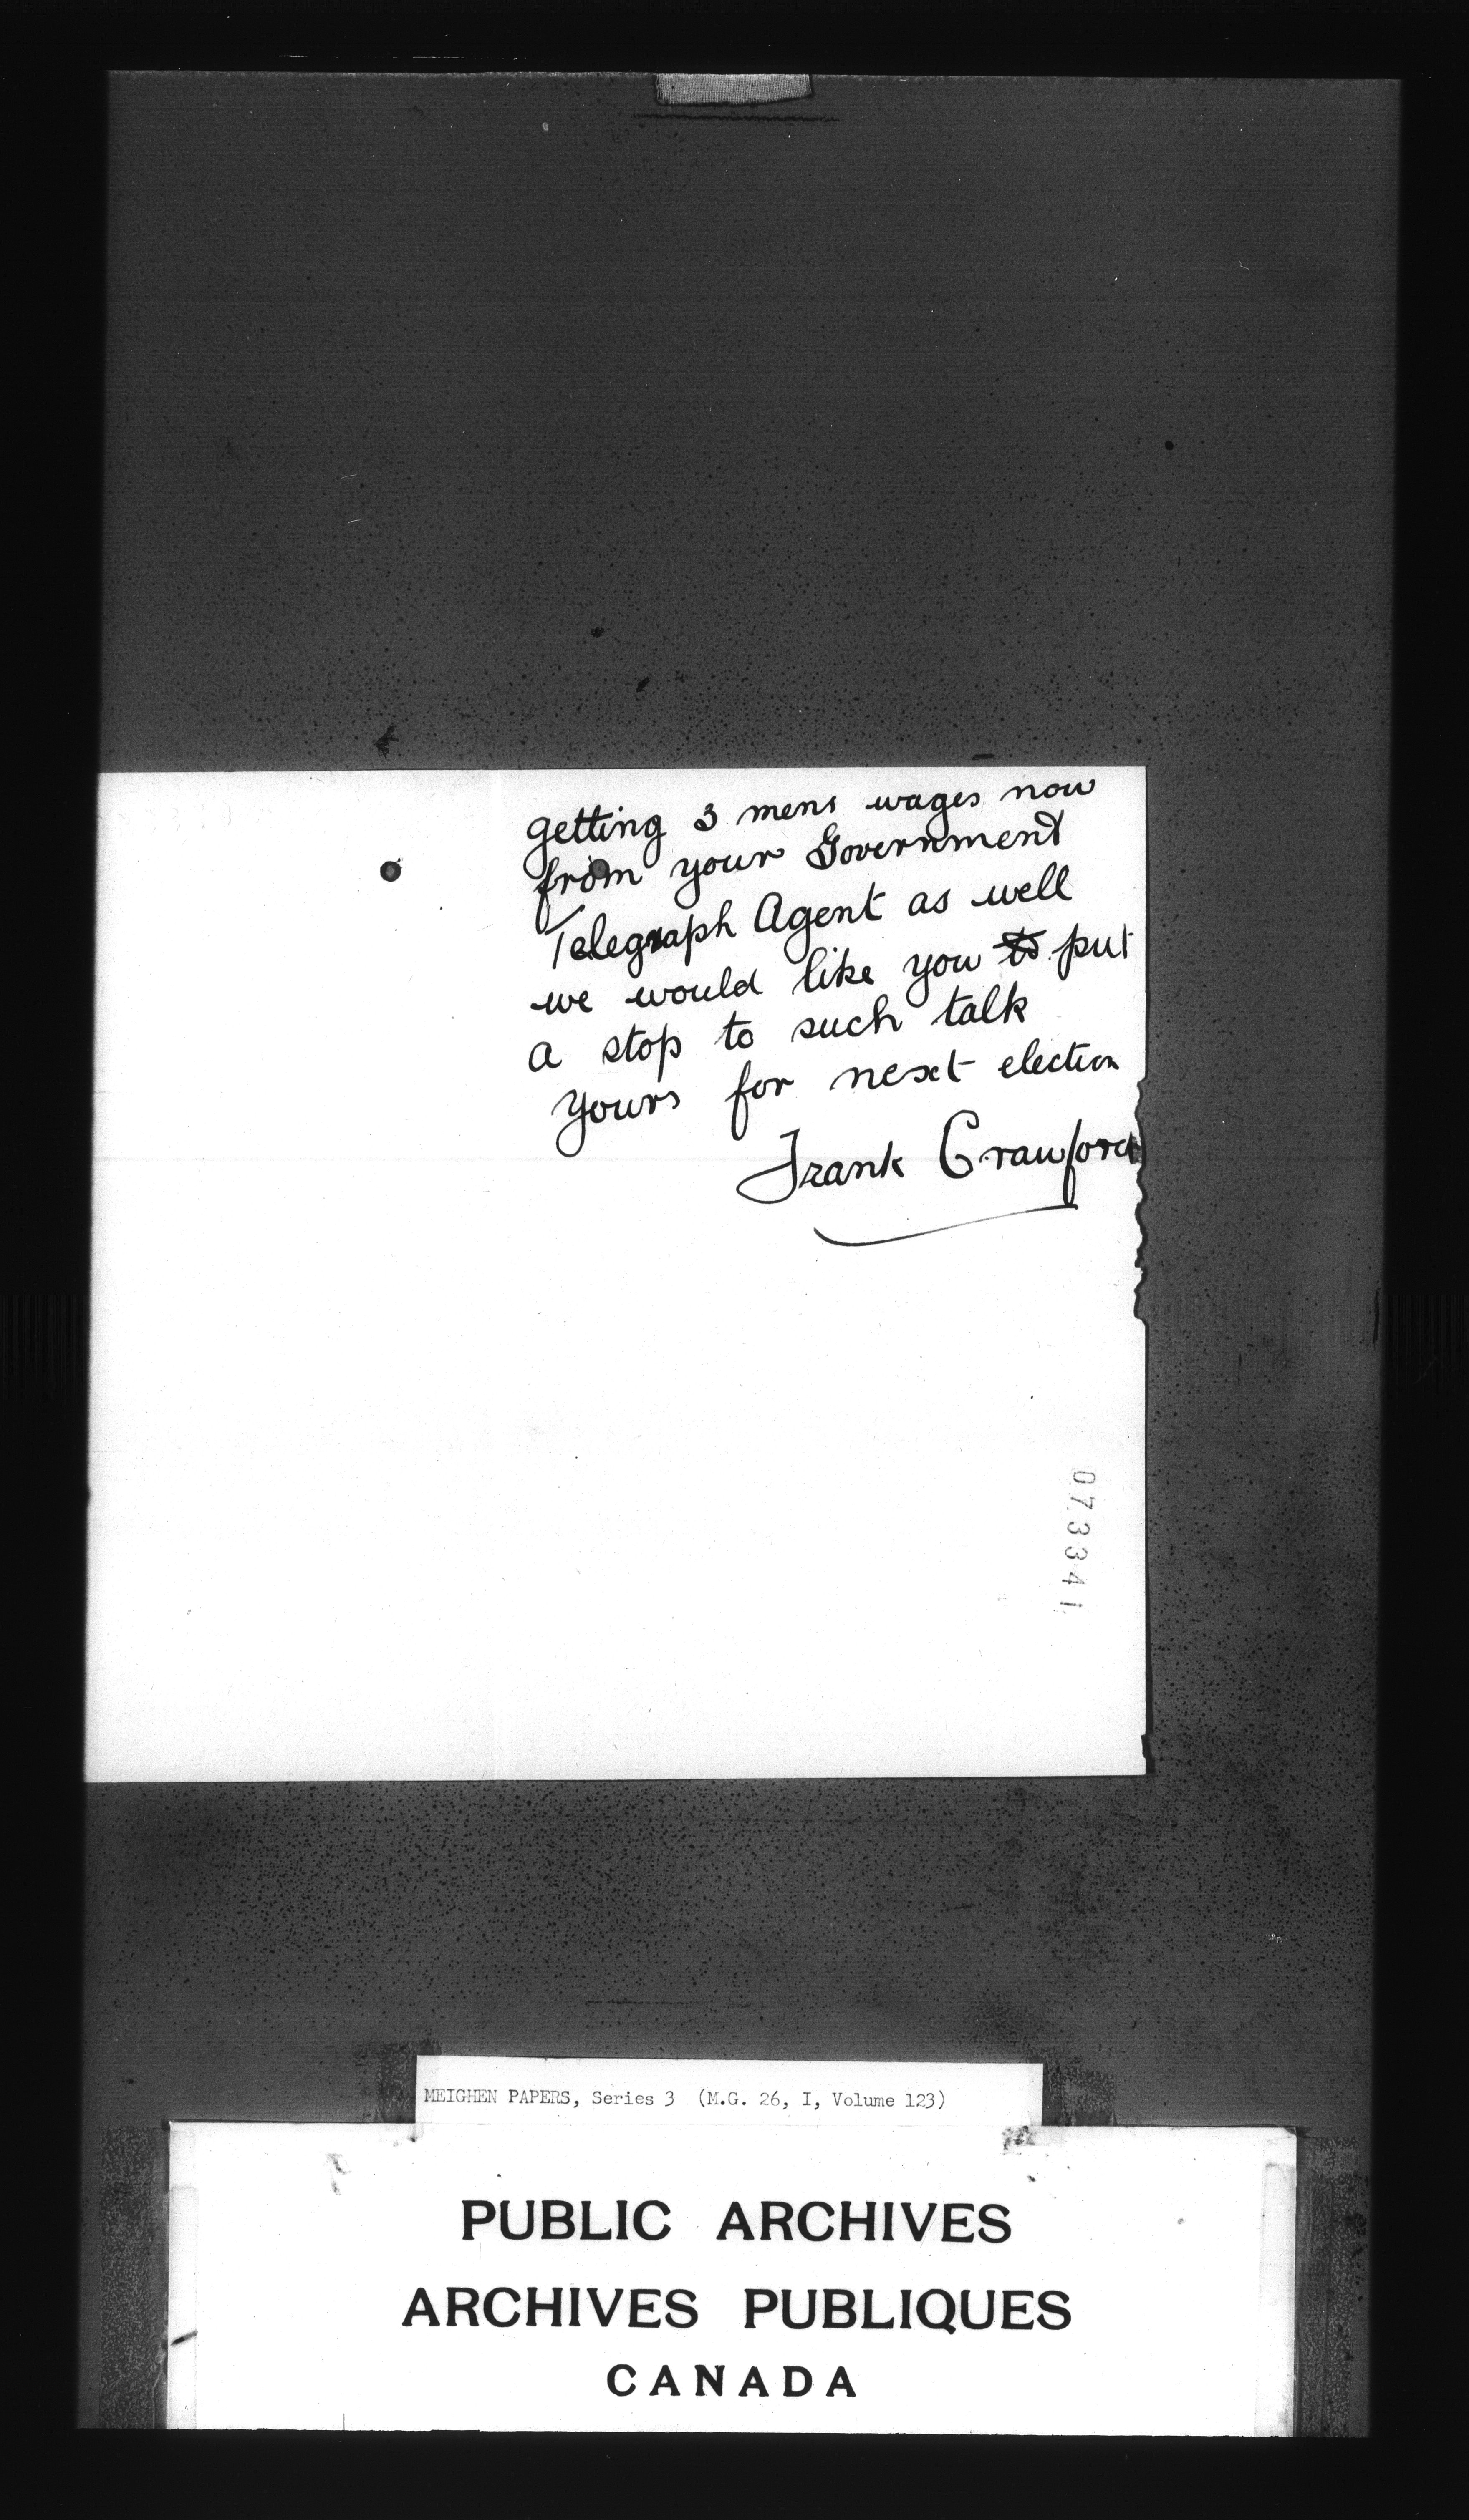 getting 3 mens wages now
from your Government
Telegraph Agent as well
we would like you to put
a stop to such talk
yours for next election
Frank Crawford
073341
MEIGHEN PAPERS, Series 3 (M.G. 26, I, Volume 123)
PUBLIC ARCHIVES
ARCHIVES PUBLIQUES
CANADA